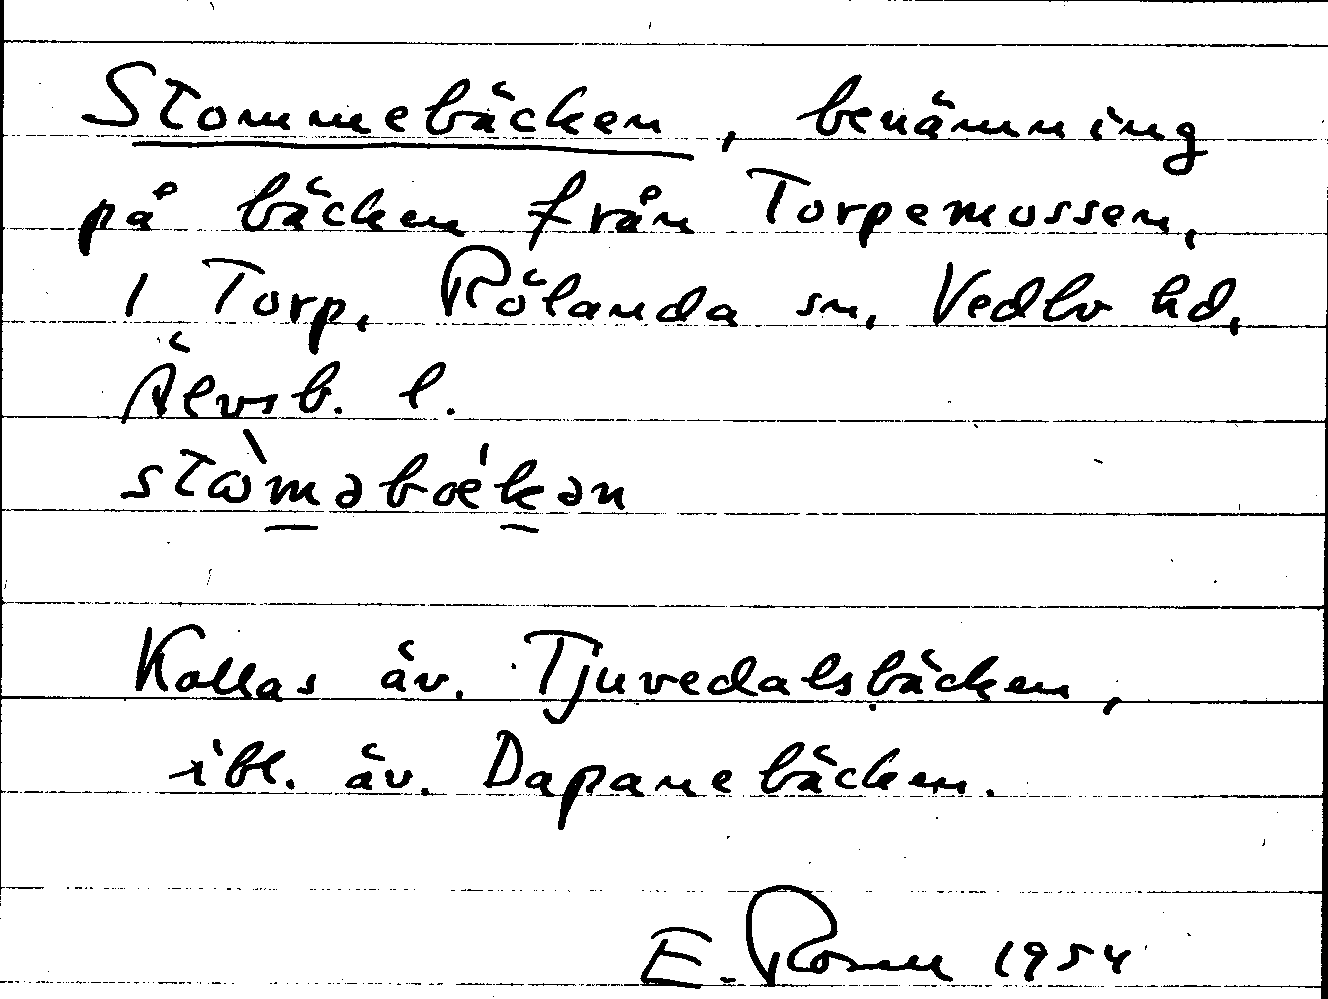 Stommebäcken, benämning
på bäcken från Torpemossen,
1 Torp, Rölanda sn, Vedbo hd,
Älvsb. l.
stὼmǝbœ́kǝn
Kallas äv. Tjuvedalsbäcken,
ibl. äv. Dapanebäcken.
E. 1954